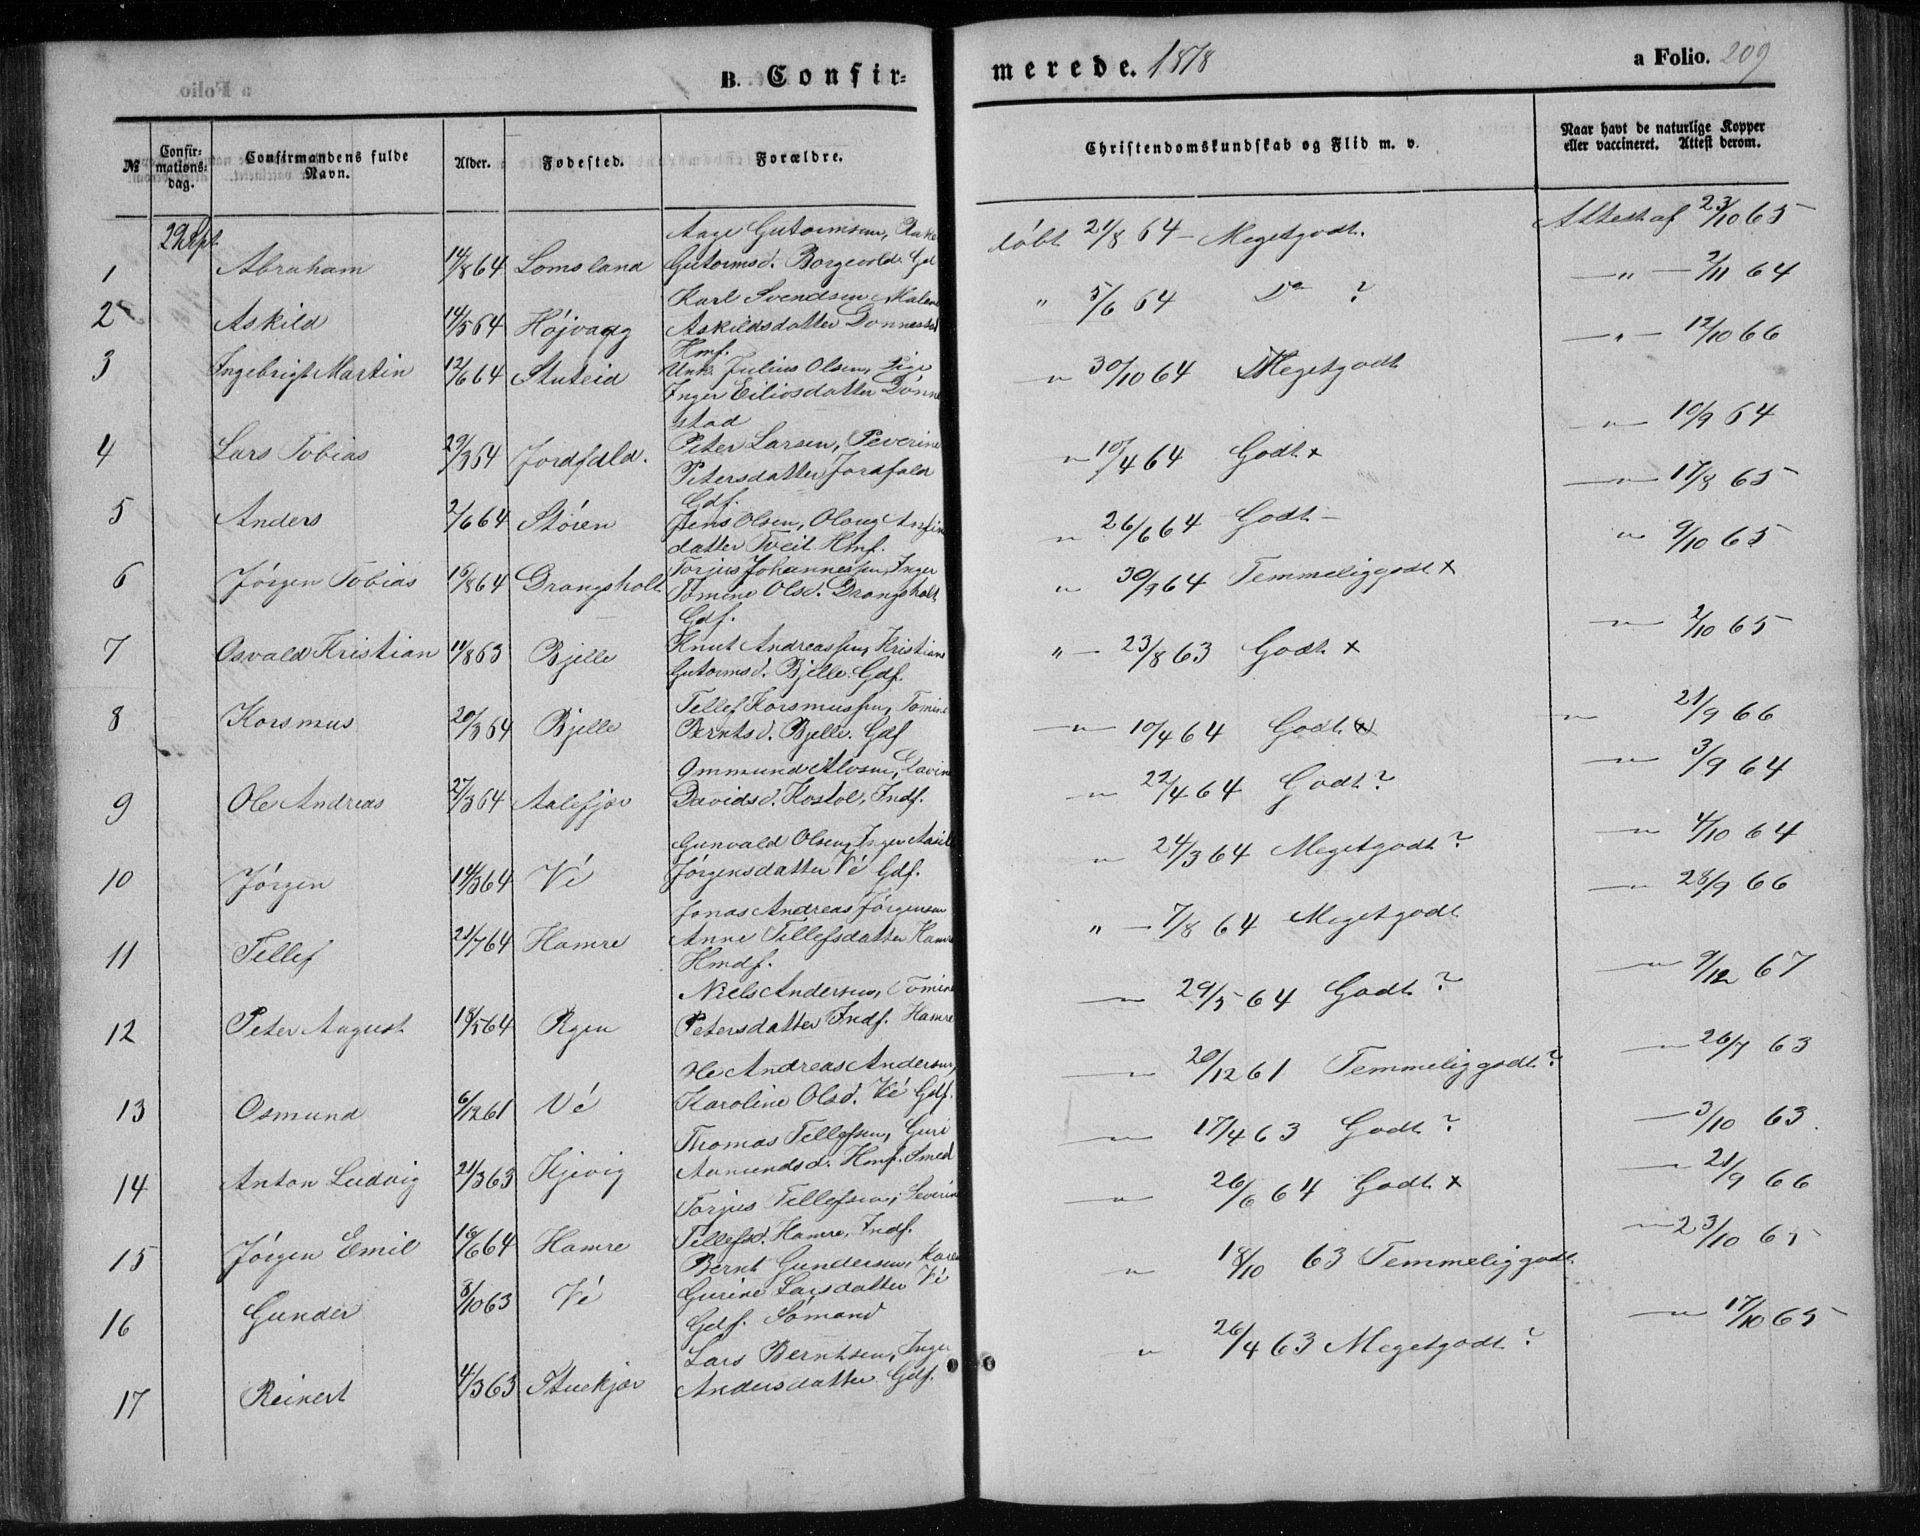 B. Confir-
merede. 1878
a Folio. 209
№
Confir-
mations-
dag.
Confirmandens fulde
Navn.
Alder.
Fødested.
Forældre.
Christendomskundskab og Flid m. v.
Naar havt de naturlige Kopper
eller vaccineret. Attest derom.
29 Sept
Aage Gutormsen,
1 Abraham 14/8 64 Lomsland Gutormsd. Borgevold. Gd
døbt 21/8 64 - Megetgodt. Attest af 23/10 65
Karl Svendsen Malene
2 Askild 14/5 64 Højvaag Askildsdatter Dønnestad
Hmf.
" 5/6 64 Do ? " 2/11 64
3 Ingebrigt Martin 12/6 64 Stuteid Unk. Julius Olsen, Pige
Inger Eiliosdatter Dønne
stad
" 30/10 64 Megetgodt " 12/10 66
4 Lars Tobias 29/3 64 Jordfald. Peter Larsen, Peverine
Petersdatter Jordfald
Gdf.
" 10/4 64 Godt x " 10/9 64
5 Anders 2/6 64 Støren Jens Olsen, Oloug Anfin
datter Tveit Hmf.
" 26/6 64 Godt - " 17/8 65
6 Jørgen Tobias 15/8 64 Drangsholt Torjus Johannessen, Inger
Tomine Olsd. Drangsholt
Gdf.
" 30/9 64 Temmeliggodt x " 9/10 65
7 Osvald Kristian 11/8 63 Bjelle Knut Andreassen, Kristiane
Gutormsd. Bjelle. Gdf.
" 23/8 63 Godt x " 2/10 65
Tellef Korsmussen, Tomine
8 Korsmus 20/3 64 Bjelle Berntsd. Bjelle. Gdf
" 10/4 64 Godt x " 21/9 66
Ommund Alvsen, Davine
9 Ole Andreas 27/3 64 Aalefjær Davidsd. Kostøl, Indf.
" 22/4 64 Godt ? " 3/9 64
Gunvald Olsen, Inger Aasille
10 Jørgen 14/3 64 Vé Jørgensdatter Vé Gdf.
" 24/3 64 Megetgodt ? " 4/10 64
Jonas Andreas Jørgensen
11 Tellef 21/7 64 Hamre Anne Tellefsdatter Hamre
Hmdf.
" 7/8 64 Megetgodt " 28/9 66
Niels Andersen, Tomine
12 Peter August 18/5 64 Rgen Petersdatter Indf. Hamre
" 29/5 64 Godt ? " 9/12 67
Ole Andreas Andersen,
13 Osmund 6/12 61 Vé Karoline Olsd. Vé Gdf.
" 20/12 61 Temmeliggodt ? " 26/7 63
Thomas Tellefsen, Guri
14 Anton Ludvig 21/3 63 Kjevig Aamundsd. Hmf. Smed
" 17/4 63 Godt ? " 3/10 63.
Torjus Tellefsen, Severine
15 Jørgen Emil 10/6 64 Hamre Tellefsd. Hamre, Indf.
" 26/6 64 Godt x " 21/9 66
Bernt Gundersen, Karen
16 Gunder 8/10 63 Vé Gurine Larsdatter Vé
Gdf. Sømand
" 18/10 63 Temmeliggodt " 23/10 65
Lars Berntsen, Inger
17 Reinert 4/3 63 Stuekjær Andersdatter Gdf.
" 26/4 63 Megetgodt ? " 17/10 65